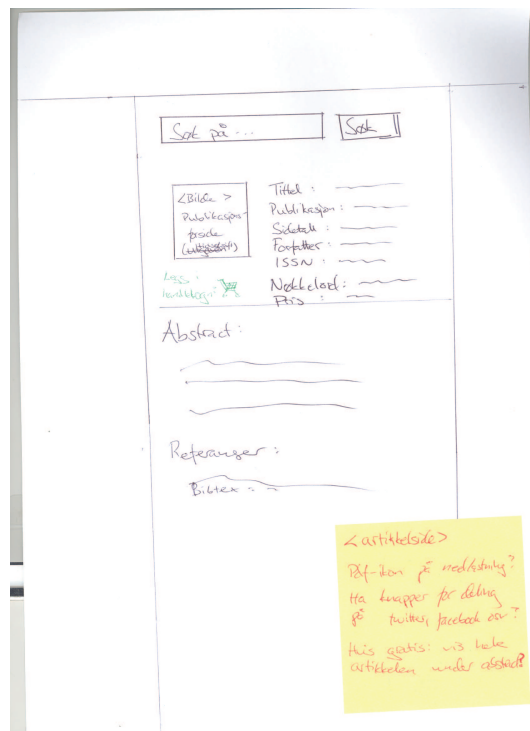 Søk på ...
Søk
<Bilde>
Publikasjons-
forside
Tittel :
Publikasjon :
Sidetall :
Forfatter :
ISSN :
Nøkkelord :
Pris :
Legg i
handlekogn :
Abstract :
Referanser :
Bibtex :
<artikkelside>
Pdf-ikon på nedlastning?
Ha knapper for deling
på twitter, facebook osv?
Hvis gratis: vis hele
artikkelen under abstract?